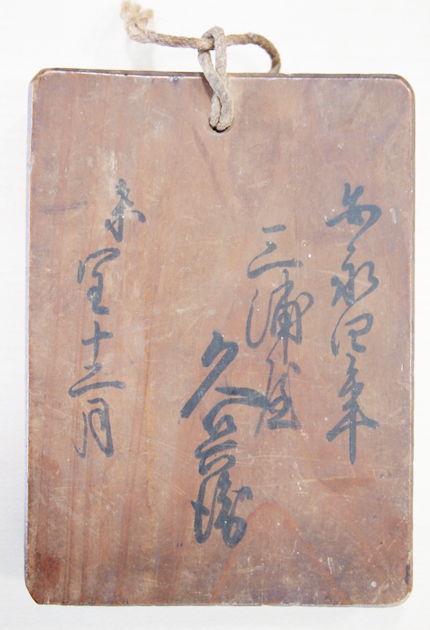 安永四年
三浦屋
久兵衛
未閏十二月